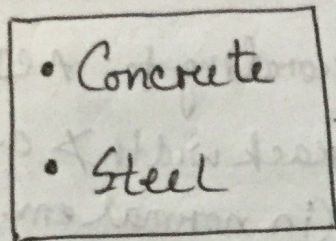 • Concrete
• Steel